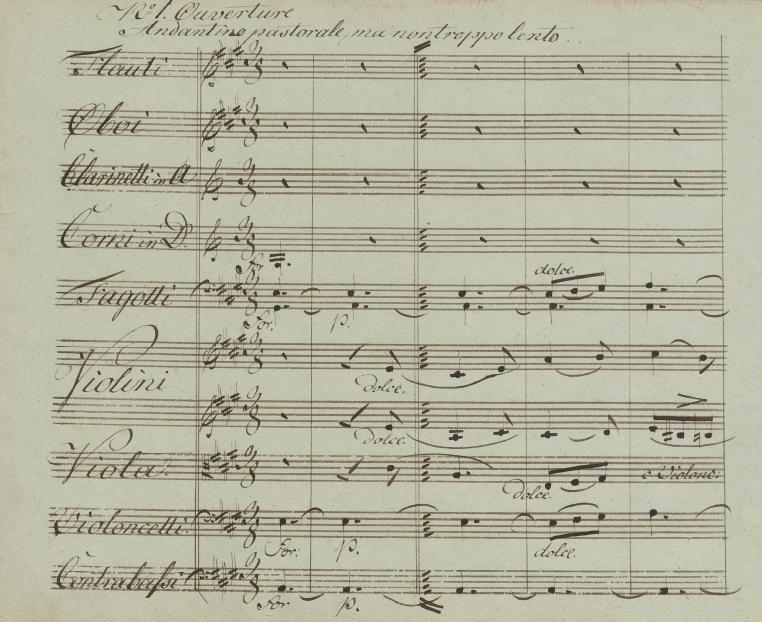 No. 1. Ouverture
Andantino pastorale, ma non troppo lento.
Flauti
Oboi
Clarinetti in A
Corni in D.
For.
dolce.
Fagotti
For. p.
Violini
dolce.
dolce.
Viola.
c Violonc.
dolce.
Violoncelli.
For. p. dolce.
Contrabassi
For p.